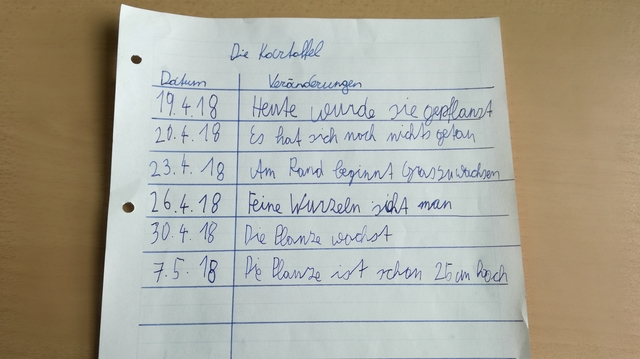 Die Kartoffel
Datum Veränderungen
19.4.18 Heute wurde sie gepflanzt
20.4.18 Es hat sich noch nichts getan
23.4.18 Am Rand beginnt Gras zu wachsen
26.4.18 Feine Wurzeln siht man
30.4.18 Die Planze wachst
7.5.18 Die Planze ist schon 25 cm hoch